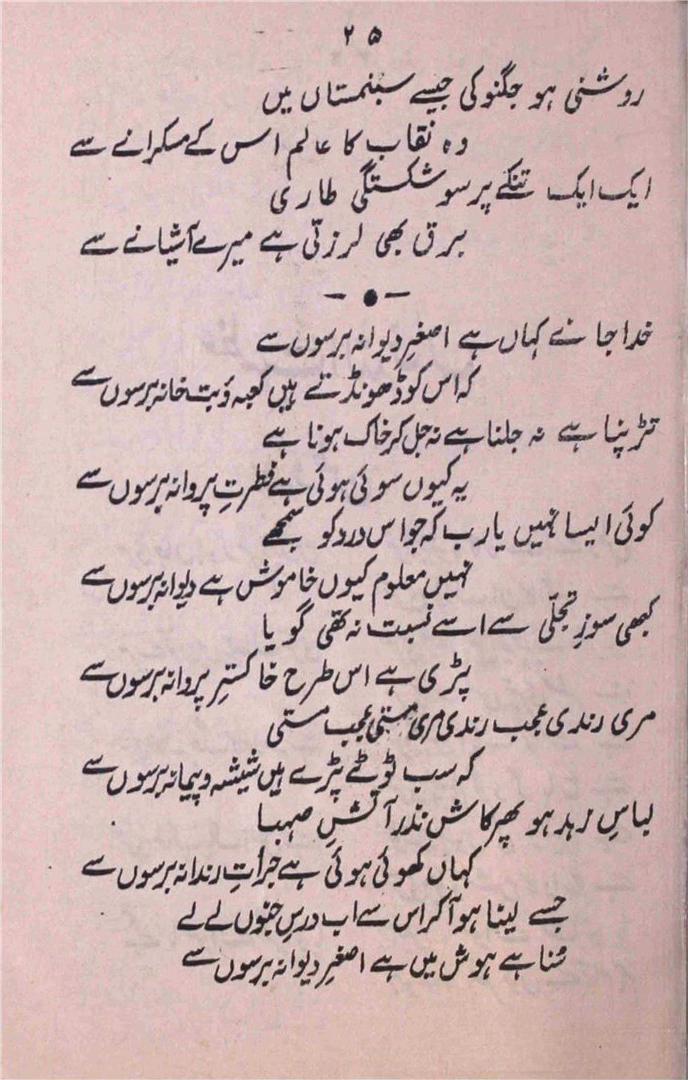 ۲۵
روشنی ہو جگنو کی جیسے سبنمستاں میں
وہ نقاب کا عالم اس کے مسکرانے سے
ایک ایک تنکے پر سو شکستگی طاری
برق بھی لرزتی ہے میرے آشیانے سے
خدا جانے کہاں ہے اصغرِ دیوانہ برسوں سے
کہ اس کو ڈھونڈتے ہیں کعبہ و بت خانہ برسوں سے
تڑپنا ہے نہ جلنا ہے نہ جل کر خاک ہونا ہے
یہ کیوں سوئی ہوئی ہے فطرتِ پروانہ برسوں سے
کوئی ایسا نہیں یارب کہ جو اس درد کو سمجھے
نہیں معلوم کیوں خاموش ہے دیوانہ برسوں سے
کبھی سوزِ تجلّی سے اسے نسبت نہ تھی گویا
پڑی ہے اس طرح خاکسترِ پروانہ برسوں سے
مری رندی عجب رندی مری مستی عجب مستی
کہ سب ٹوٹے پڑے ہیں شیشہ و پیمانہ برسوں سے
لباسِ زہد ہو پھر کاش نذر آتشِ صہبا
کہاں کھوئی ہوئی ہے جراتِ رندانہ برسوں سے
جسے لینا ہو آ کر اس سے اب درسِ جنوں لے لے
سُنا ہے ہوش میں ہے اصغرِ دیوانہ برسوں سے